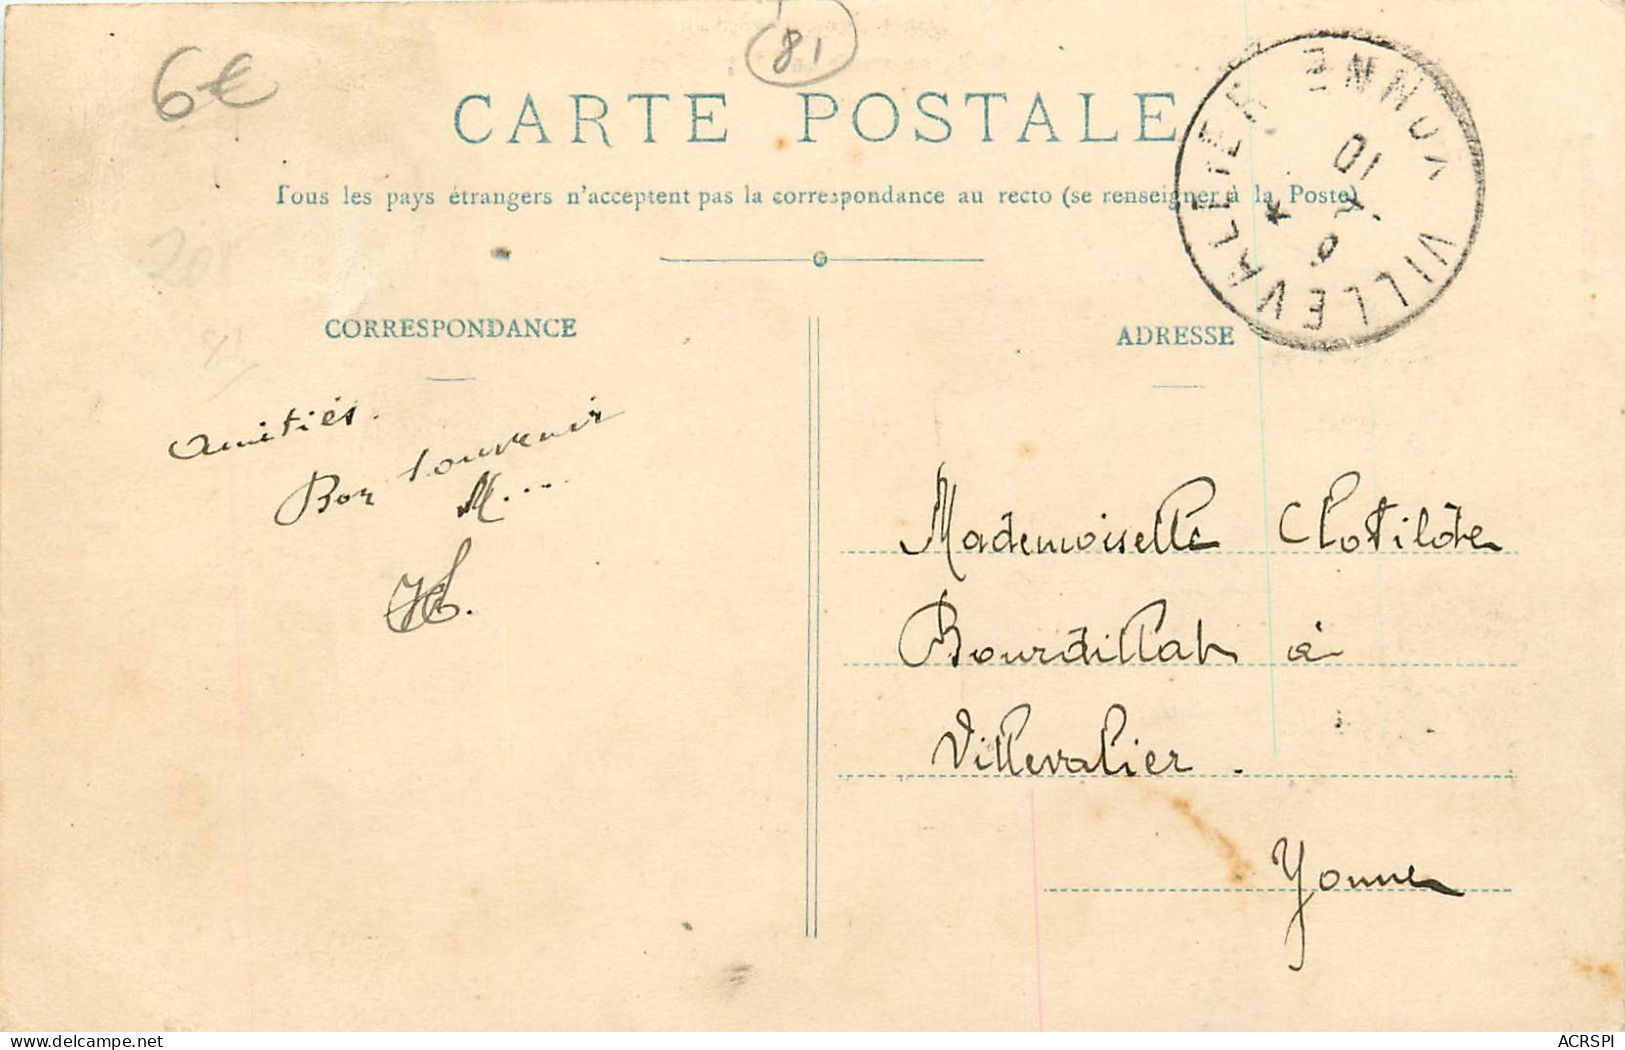 6€
81
CARTE POSTALE
Tous les pays étrangers n'acceptent pas la correspondance au recto (se renseigner à la Poste)
VILLEVALLIER YONNE
10
CORRESPONDANCE
ADRESSE
Amitiés.
Bon souvenir
M....
Mademoiselle Clotilde
Bourdillat à
Villevalier.
Yonne
delcampe.net
ACRSPI